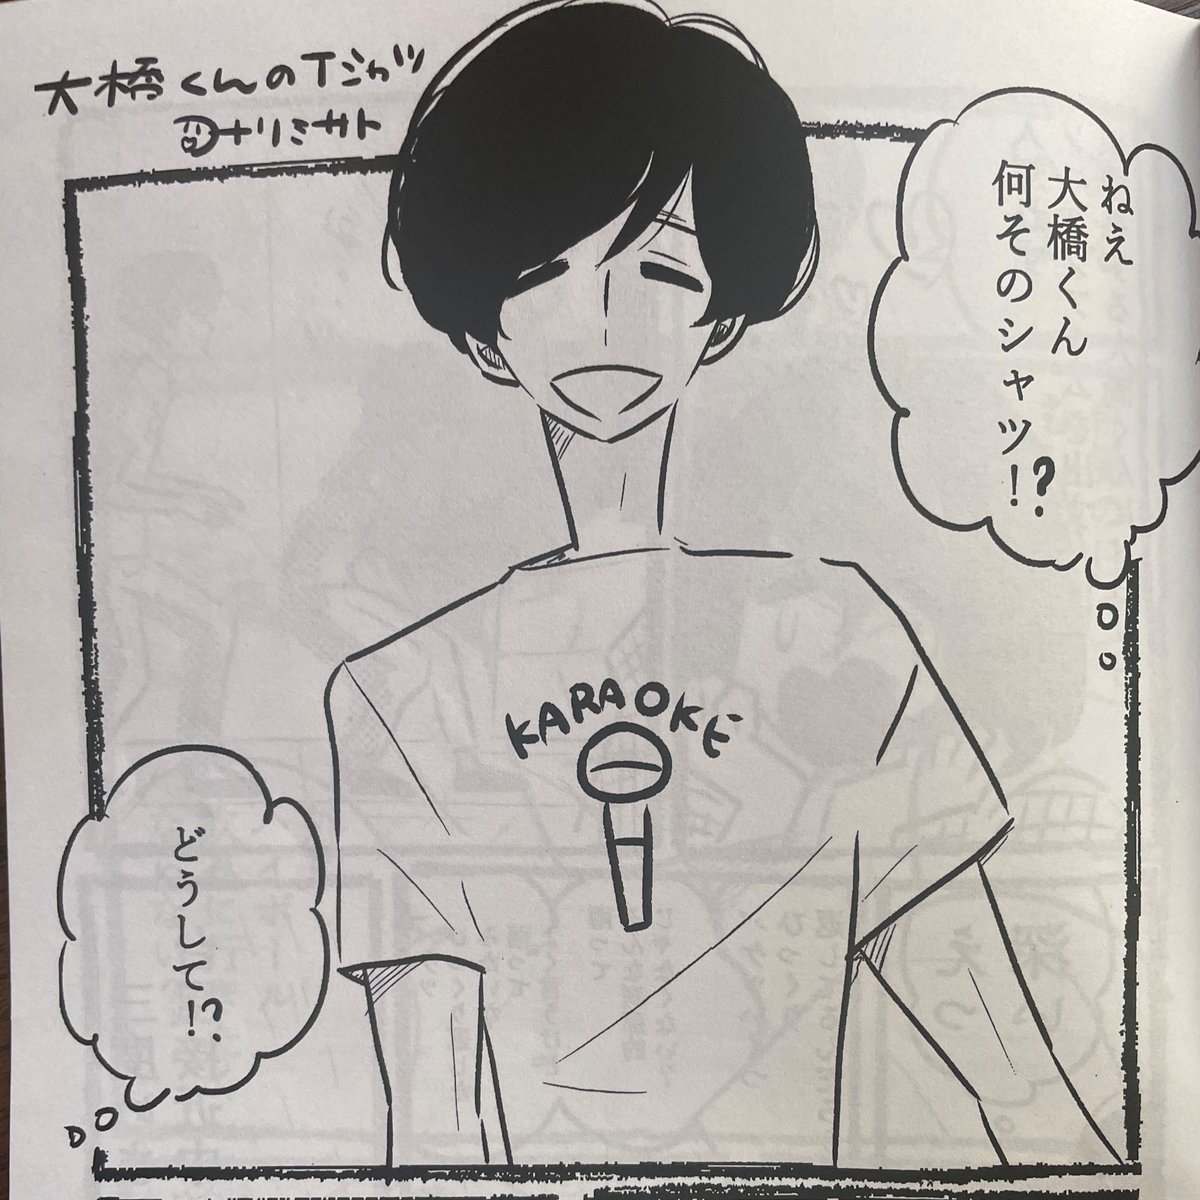 大橋くんのTシャツ
ナリミサト
ねえ
大橋くん
何そのシャツ!?
KARAOKE
どうして!?